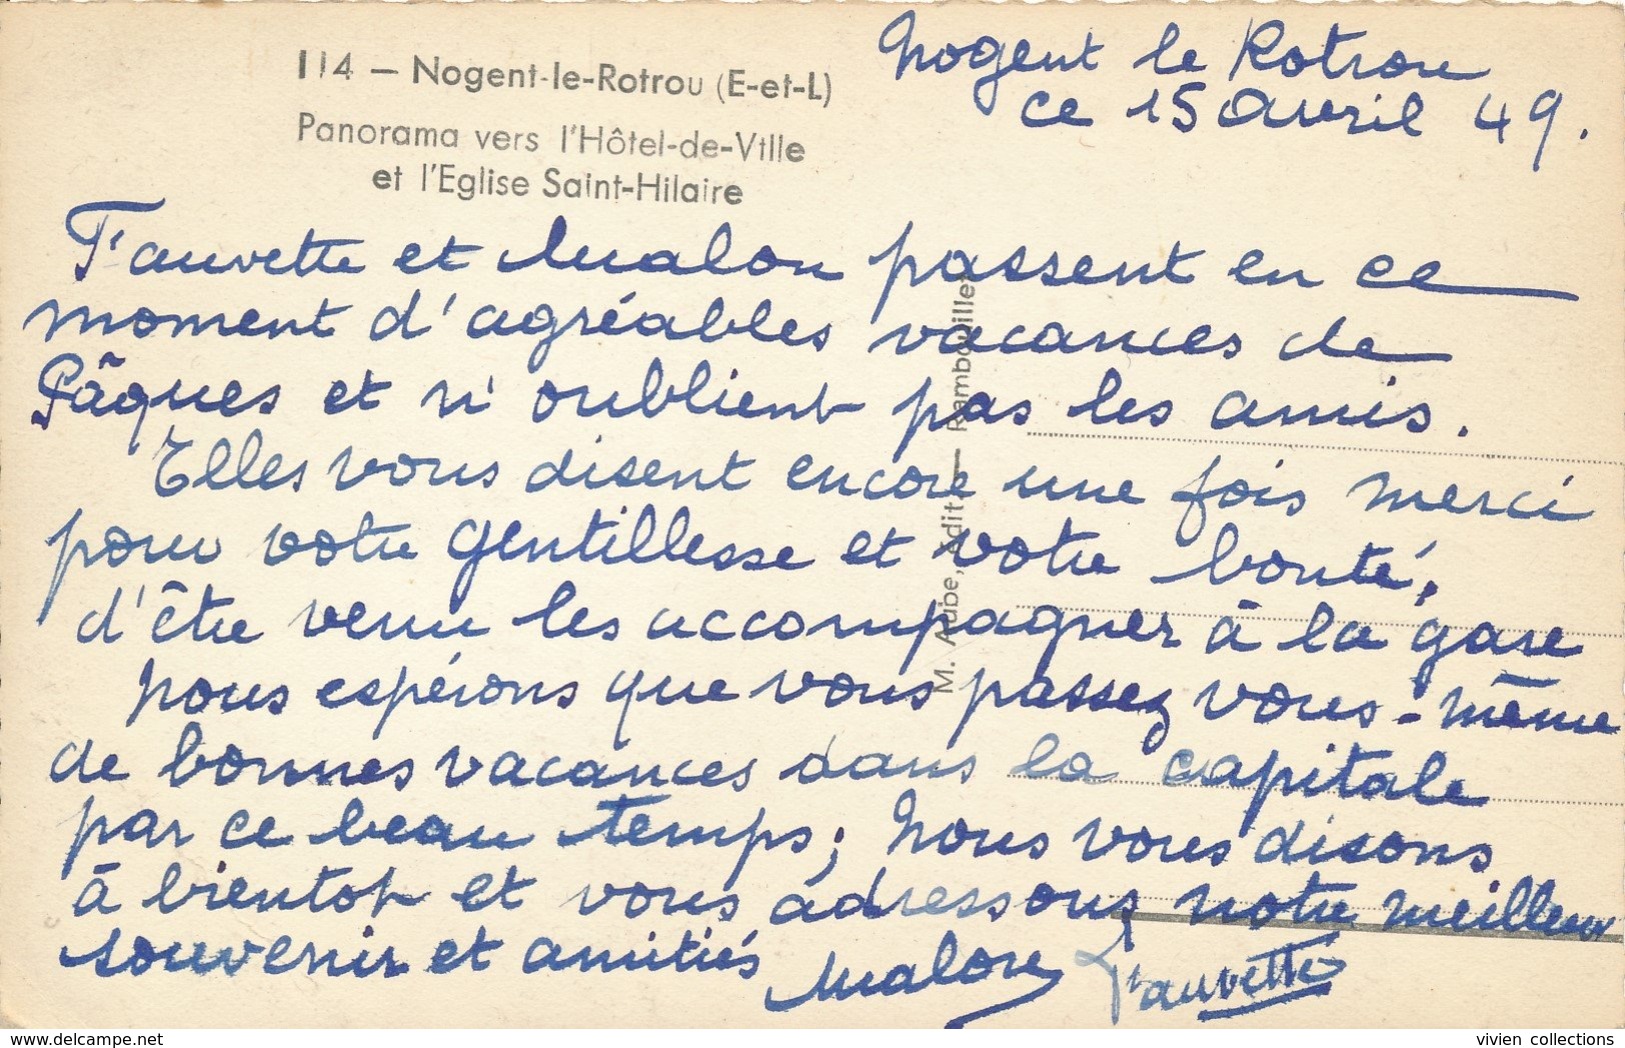 114 – Nogent-le-Rotrou (E-et-L)
Panorama vers l'Hôtel-de-Ville
et l'Eglise Saint-Hilaire
Nogent le Rotrou
ce 15 avril 49.
Fauvette et Malou passent en ce
moment d'agréables vacances de
Pâques et n'oublient pas les amis.
Elles vous disent encore une fois merci
pour votre gentillesse et votre bonté,
d'être venu les accompagner à la gare
nous espérons que vous passez vous-même
de bonnes vacances dans la capitale
par ce beau temps; nous vous disons
à bientot et vous adressons notre meilleur
souvenir et amitiés Malou Fauvette
M. Aube, Edit. – Rambouillet
vivien collections